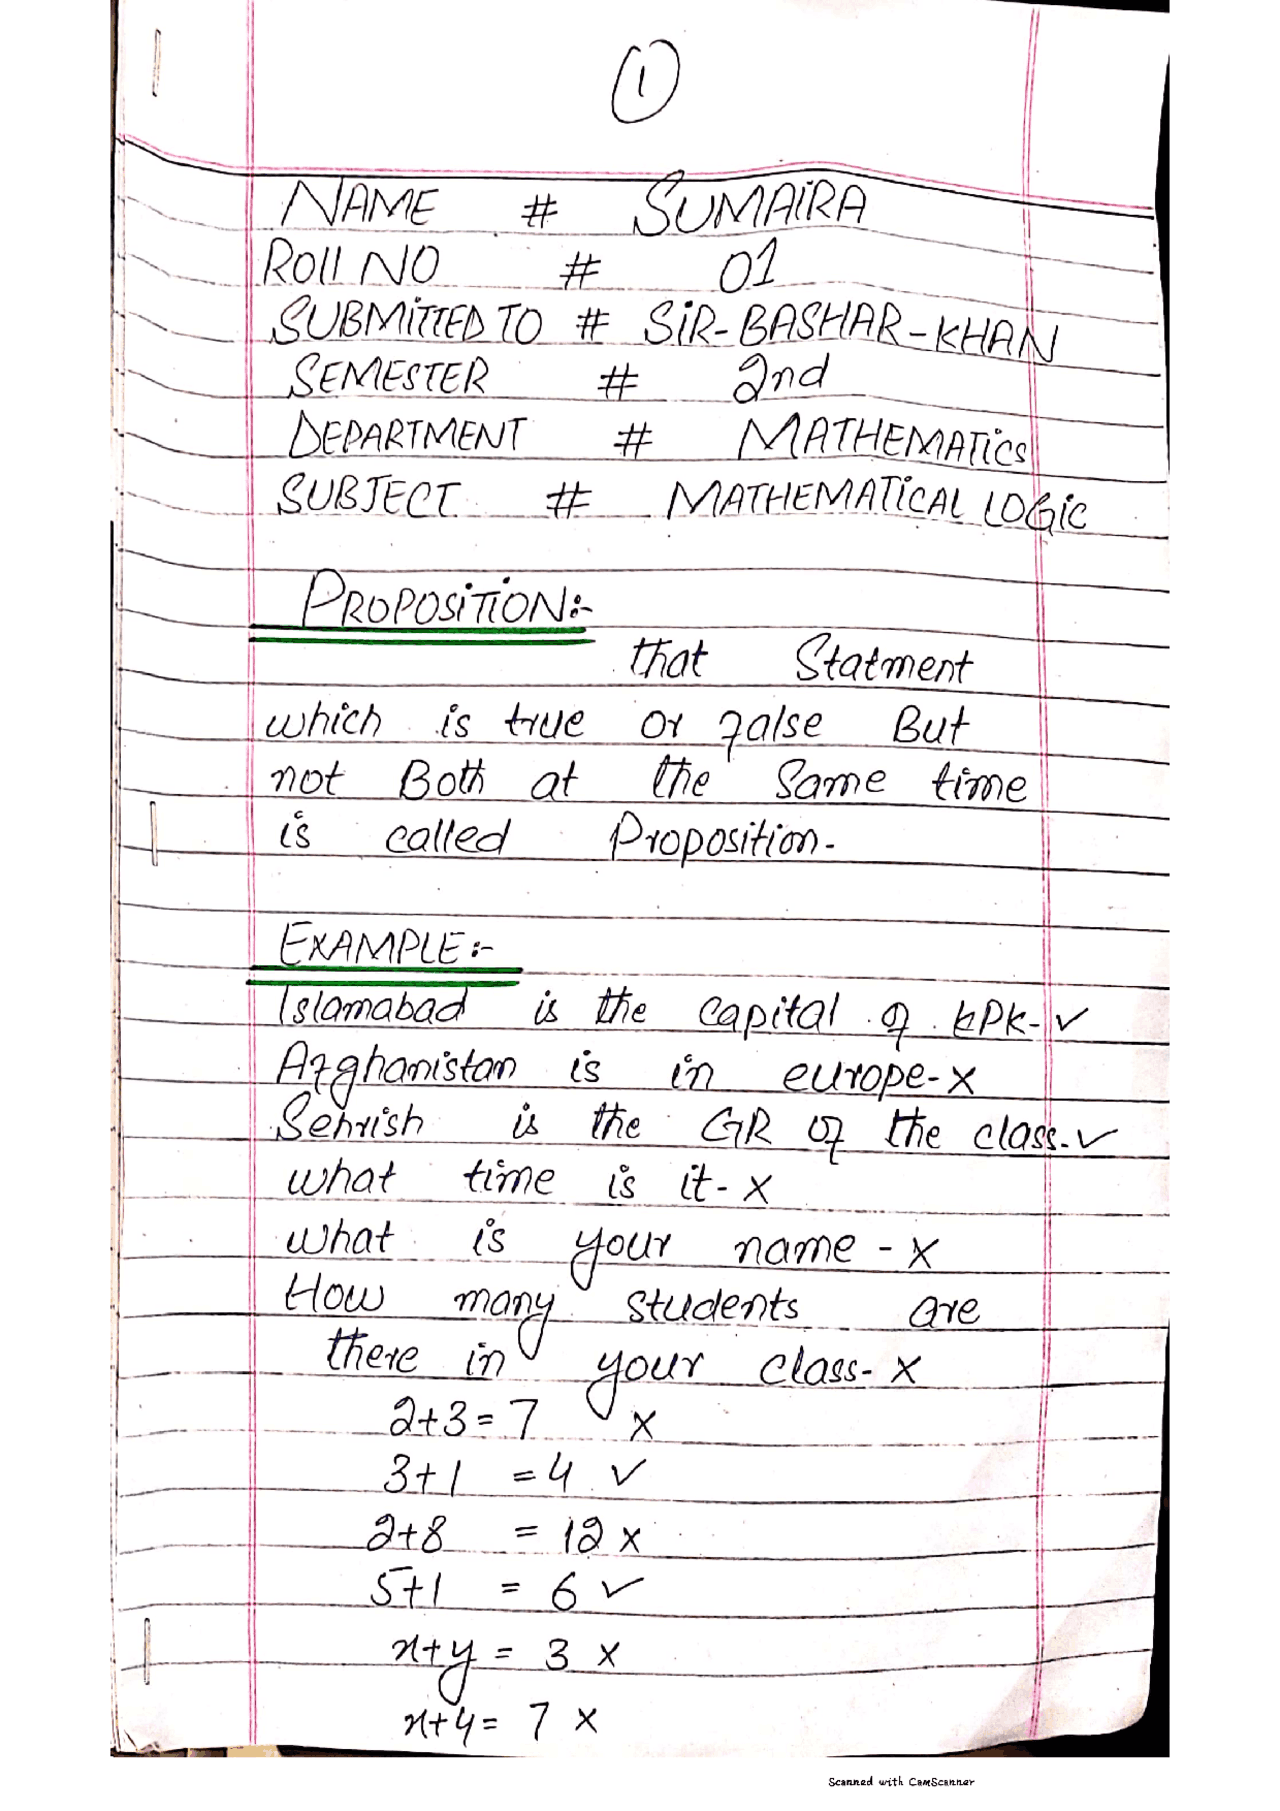 1
NAME # SUMAIRA
Roll NO # 01
SUBMITTED TO # SIR-BASHAR-KHAN
SEMESTER # 2nd
DEPARTMENT # MATHEMATICS
SUBJECT # MATHEMATICAL LOGIC
PROPOSITION:-
that Statment
which is true or false But
not Both at the Same time
is called Proposition-
EXAMPLE:-
Islamabad is the capital of kPK- ✓
Afghanistan is in europe- x
Sehrish is the GR of the class- ✓
what time is it- x
what is your name - x
How many students are
there in your class- x
2+3=7 x
3+1 =4 ✓
2+8 = 12 x
5+1 = 6 ✓
x+y = 3 x
x+4= 7 x
Scanned with CamScanner